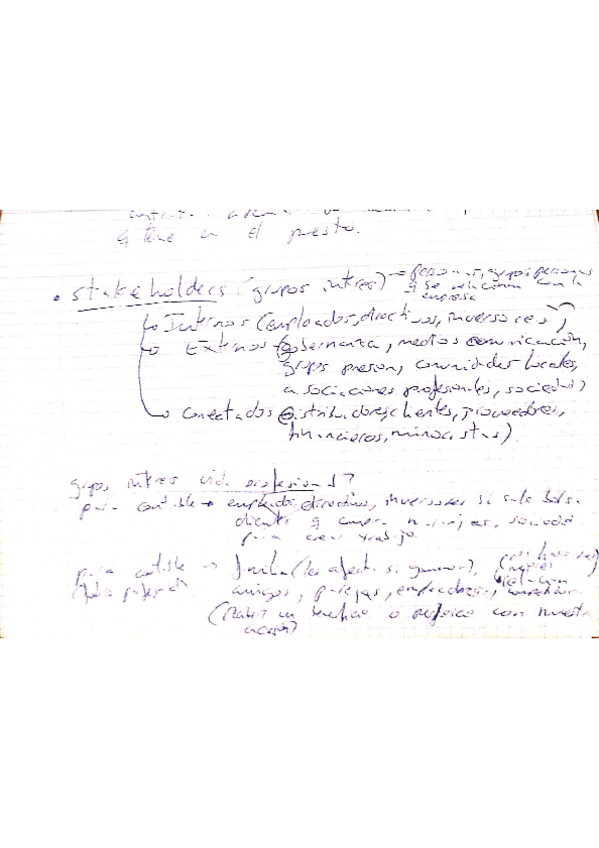 q tiene en el puesto.
• Stakeholders (grupos interes) → personas, grupos personas
q se relacionan con la
empresa
↳ Internos (empleados, directivos, inversores)
↳ Externos (gobernanza, medios comunicación,
grupos presion, comunidades locales,
asociaciones profesionales, sociedad)
↳ Conectados (distribuidores, clientes, proveedores,
financieros, minoristas)
grupos interes vida profesional?
para contable → empleados, directivos, inversores si sale bolsa
clientes q sociedad
para crear trabajo.
para contable → familia (les afecta si ganamos),
amigos, parejas, empleadores,
beneficio o perjuicio con nuestra